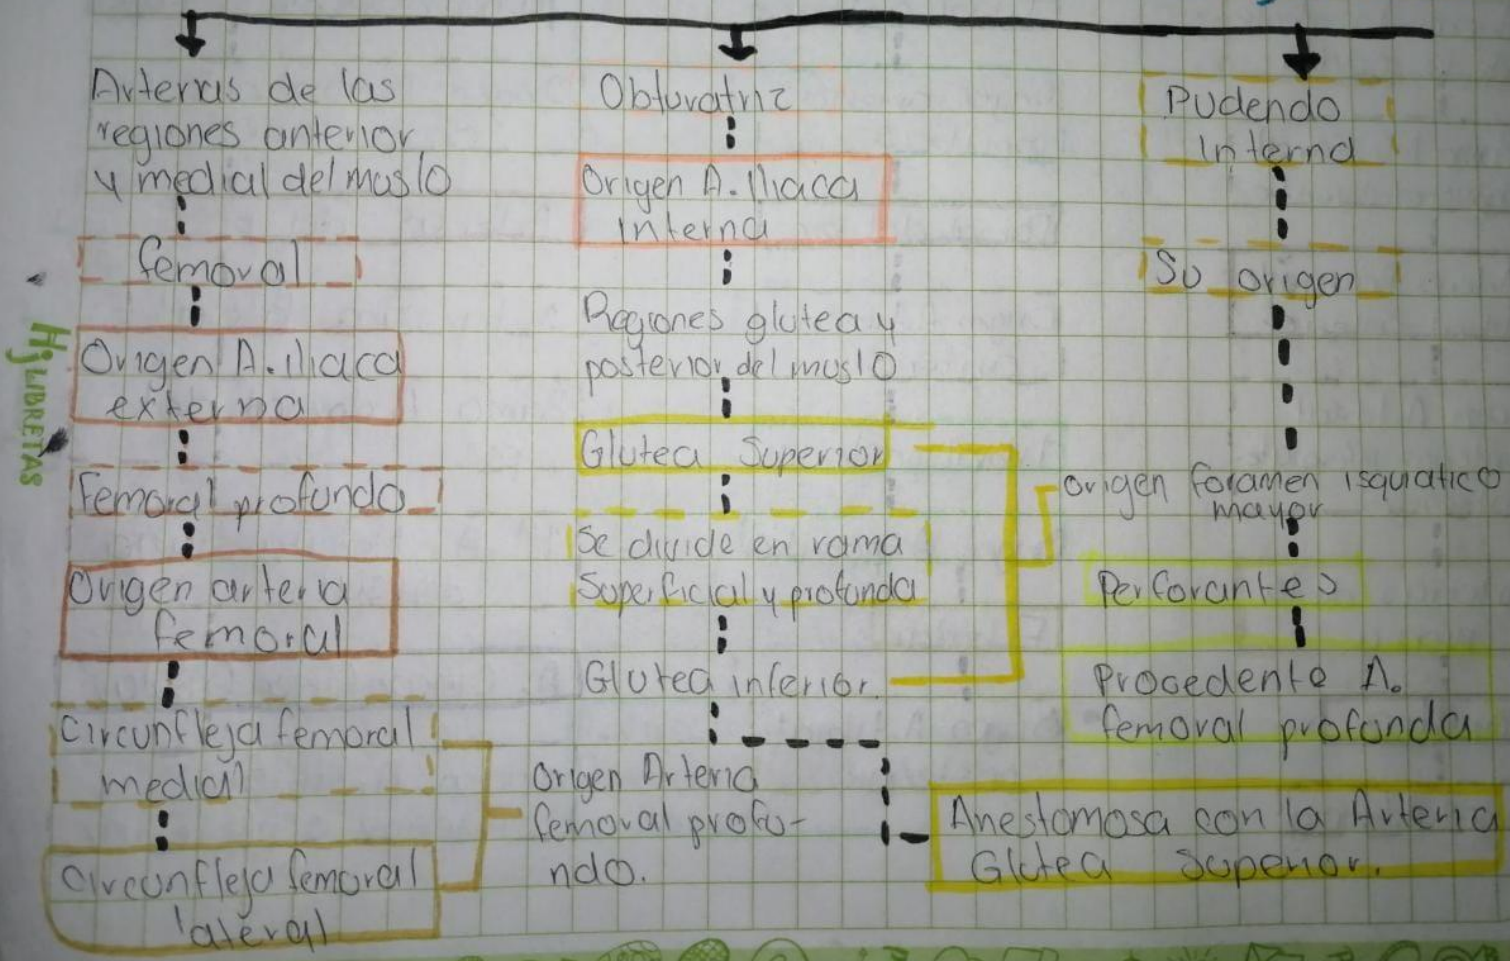 Arterias de las
regiones anterior
y medial del muslo
femoral
Origen A. Iliaca
externa
Femoral profundo
Origen arteria
femoral
Circunfleja femoral
medial
Circunfleja femoral
lateral
Origen Arteria
femoral profu-
ndo.
Obturatriz
Origen A. Iliaca
interna
Regiones glutea y
posterior del muslo
Glutea Superior
Se divide en rama
Superficial y profunda
Glutea inferior.
Pudendo
Interna
Su origen
Origen foramen isquiatico
mayor
Perforantes
Procedente A.
femoral profunda
Anestomosa con la Arteria
Glutea Superior.
Hj LIBRETAS